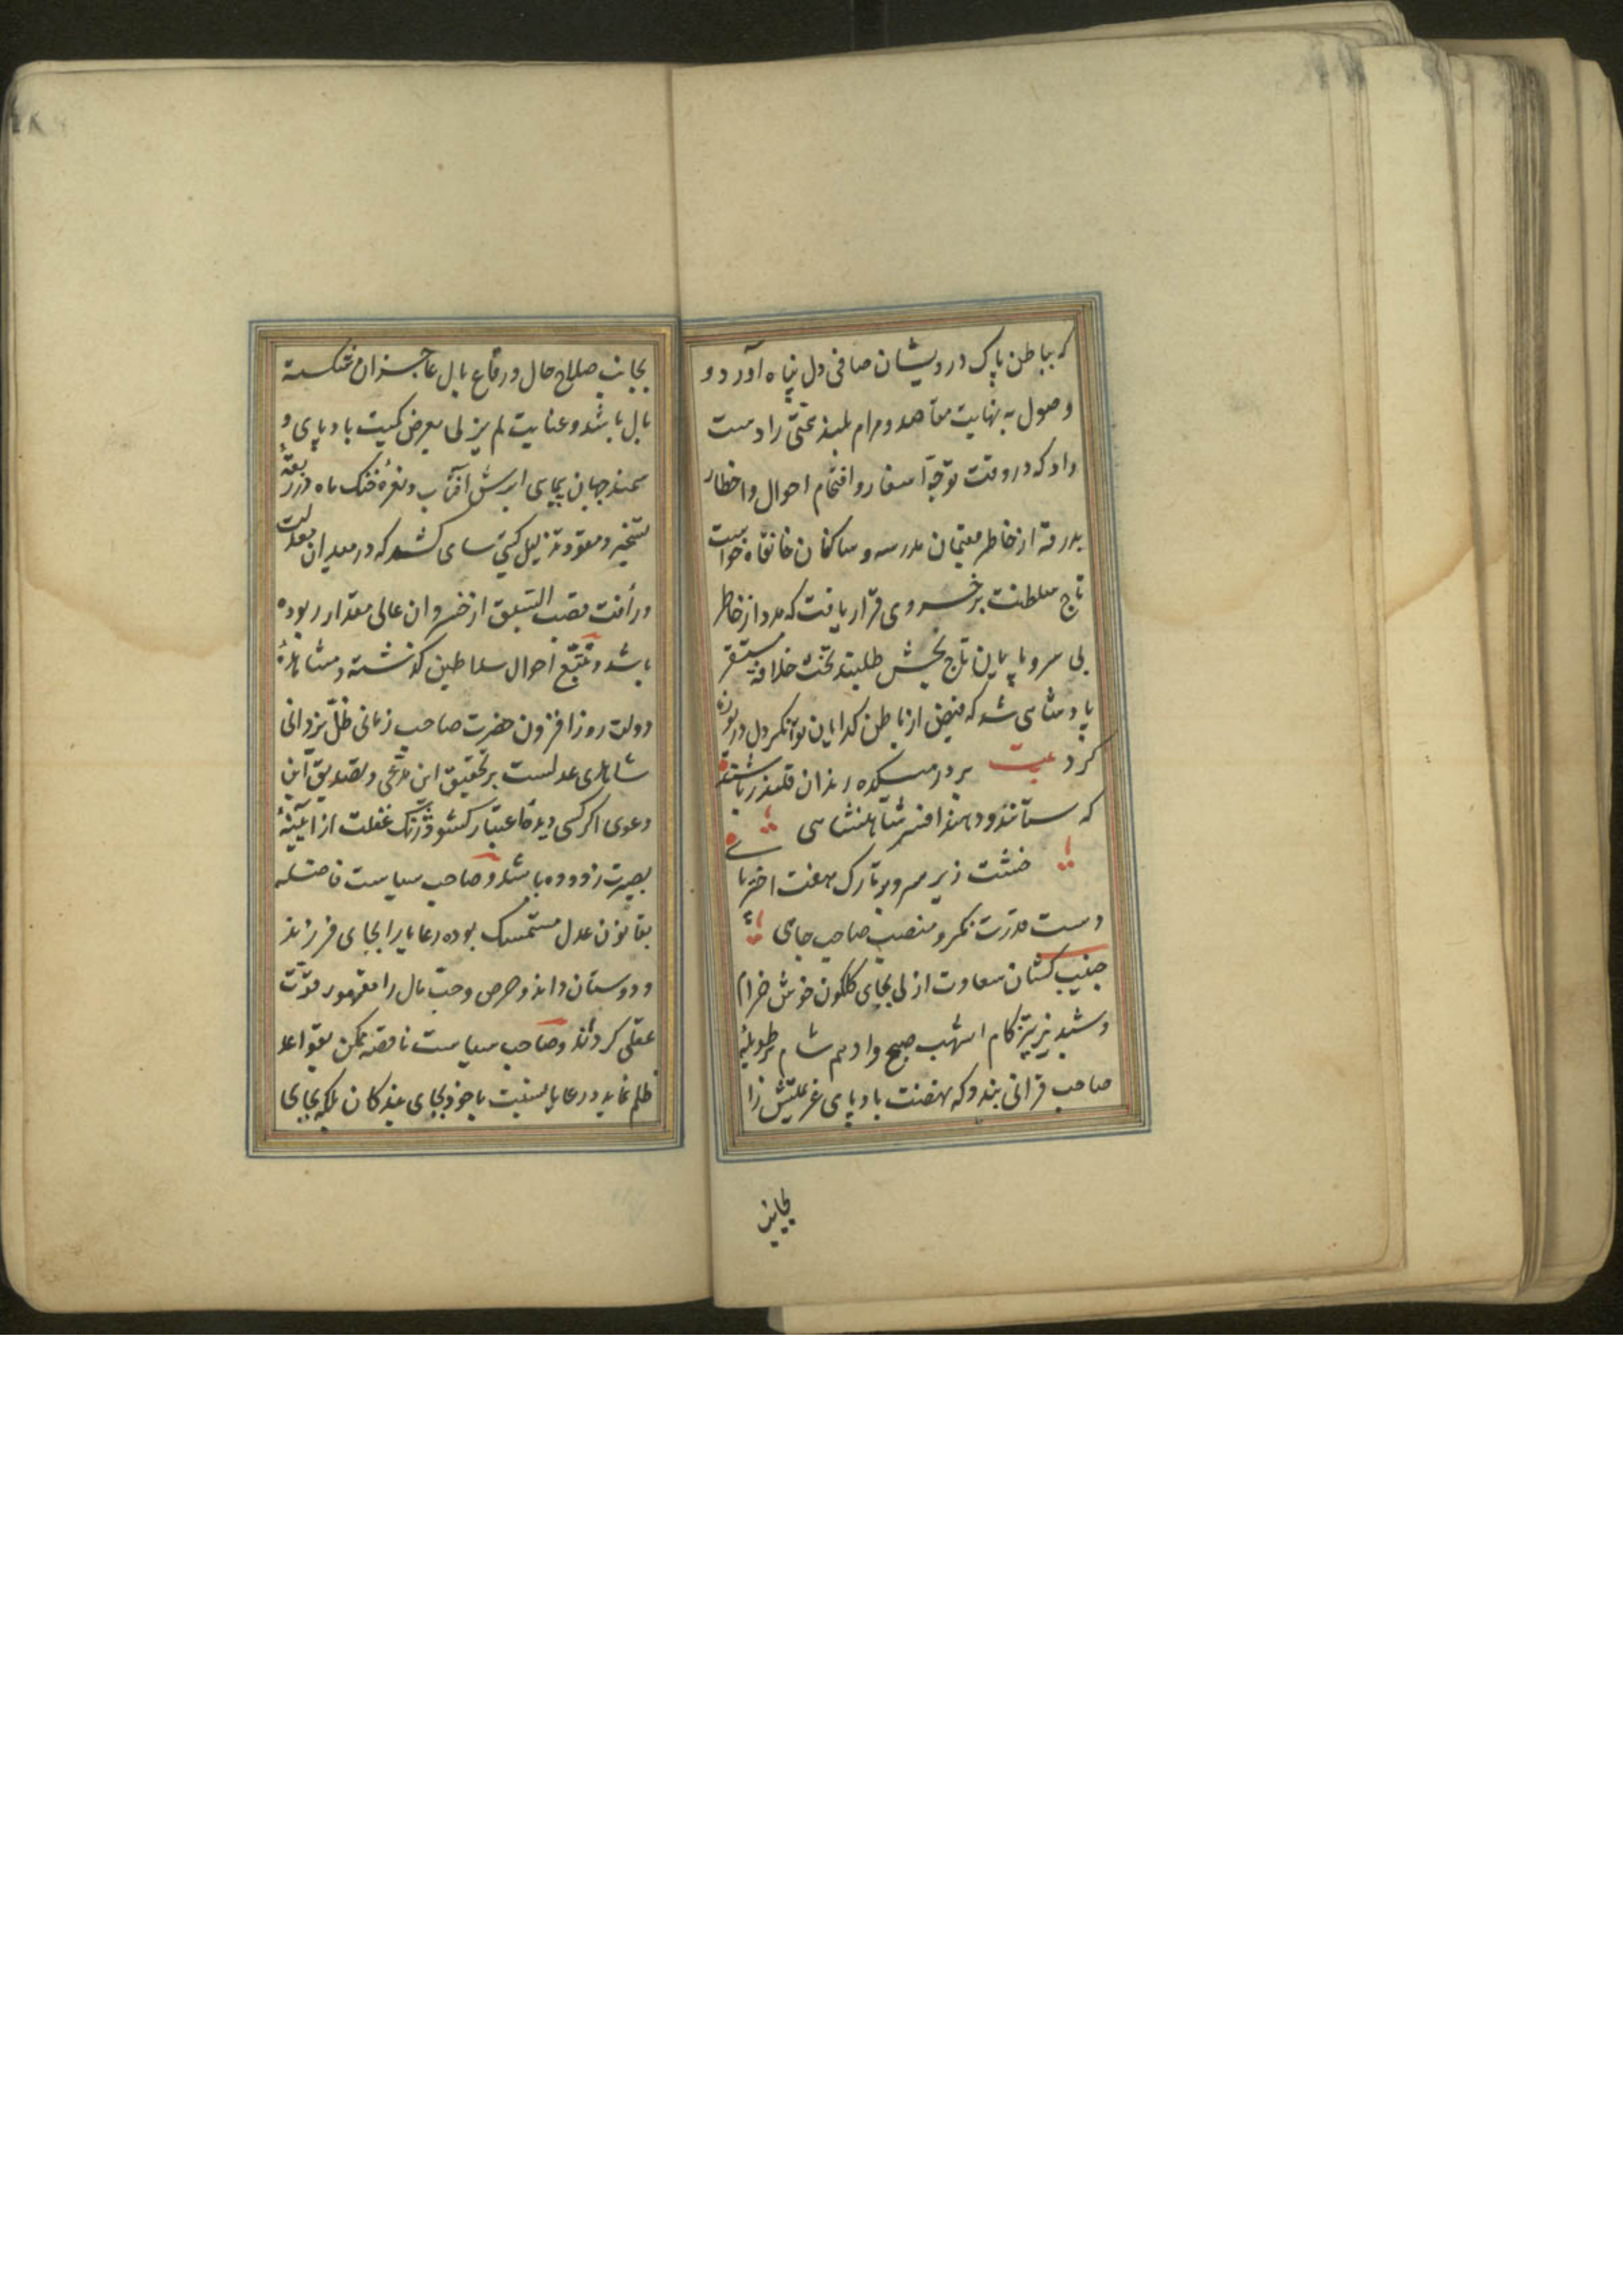 که بباطن پاک درویشان صافی دل پناه آورد و
وصول به نهایت مقاصد و مرام بلند بختی را دست
داد که در وقت توجه اسفار و اقتحام اهوال و اخطار
بدرقه از خاطر مقیمان مدرسه و ساکنان خانقاه خواست
تاج سلطنت بر خسروی قرار یافت که مدد از خاطر
بی سر و پایان تاج بخش طلبید تخت خلافت مستقر
پادشاهی شد که فیض از باطن کدایان توانکر دل دریوزه
کرد بیت بر در میکده رندان قلندر باشند
که ستانند و دهند افسر شاهنشاهی
خشت زیر سر و بر تارک هفت اختر پا
دست قدرت نکر و منصب صاحب جاهی
جنیب کشان سعادت ازلی بجای کلکون خوش خرام
و شبدیز تیزکام اشهب صبح و ادهم شام بر طویلهٔ
صاحب قرانی بندد که نهضت بادپای عزیمتش را
بجانب
بجانب صلاح حال و رفاع بال عاجزان شکسته
بال باشد و عنایت لم یزلی بعرض کمیت بادپای و
سمند جهان پیمای ابرش آفتاب و نقرهٔ خنک ماه در ربقهٔ
تسخیر و مقود تذلیل کیتی ستای کشد که در میدان معدلت
و رأفت قصب السبق از خسروان عالی مقدار ربوده
باشد و تتبع احوال سلاطین کذشته و مشاهدهٔ
دولت روزافزون حضرت صاحب زمانی ظل یزدانی
شاهدی عدلست بر تحقیق این مدعی و تصدیق این
دعوی اکر کسی دیدهٔ اعتبار کشود و زنک غفلت از آیینهٔ
بصیرت زدوده باشد و صاحب سیاست فاضله
بقانون عدل مستمسک بوده رعایا را بجای فرزند
و دوستان داند و حرص و حب مال را مقهور قوت
عقلی کرداند و صاحب سیاست ناقصه تمکن بقواعد
ظلم نماید و رعایا نسبت باخود بجای بندکان بلکه بجای